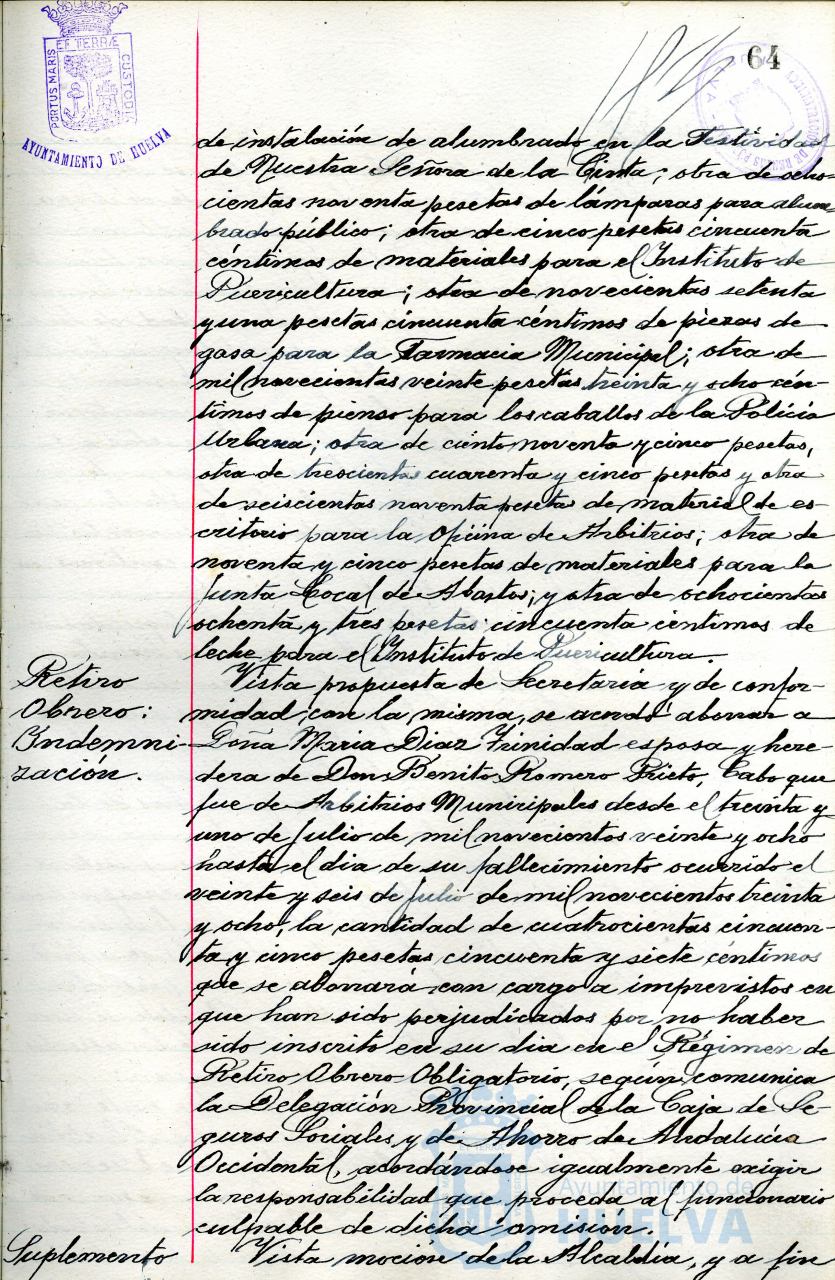 64
PORTUS MARIS ET TERRÆ CUSTODIA
AYUNTAMIENTO DE HUELVA
de instalación de alumbrado en la Festividad
de Nuestra Señora de la Cinta; otra de ocho-
cientas noventa pesetas de lámparas para alum-
brado público; otra de cinco pesetas cincuenta
céntimos de materiales para el Instituto de
Puericultura; otra de novecientas setenta
y una pesetas cincuenta céntimos de piezas de
gasa para la Farmacia Municipal; otra de
mil novecientas veinte pesetas treinta y ocho cén-
timos de pienso para los caballos de la Policia
Urbana; otra de ciento noventa y cinco pesetas,
otra de trescientas cuarenta y cinco pesetas y otra
de seiscientas noventa pesetas de material de es-
critorio para la oficina de Arbitrios; otra de
noventa y cinco pesetas de materiales para la
Junta Local de Abastos; y otra de ochocientas
ochenta y tres pesetas cincuenta centimos de
leche para el Instituto de Puericultura.
Retiro
Obrero:
Indemni-
zación.
Vista propuesta de Secretaria y de confor-
midad con la misma, se acordó abonar a
Doña Maria Diaz Trinidad esposa y here-
dera de Don Benito Romero Prieto, Cabo que
fue de Arbitrios Municipales desde el treinta y
uno de Julio de mil novecientos veinte y ocho
hasta el dia de su fallecimiento ocurrido el
veinte y seis de Julio de mil novecientos treinta
y ocho, la cantidad de cuatrocientas cincuen-
ta y cinco pesetas cincuenta y siete céntimos
que se abonará con cargo a imprevistos en
que han sido perjudicados por no haber
sido inscrito en su dia en el Régimen de
Retiro Obrero Obligatorio, según comunica
la Delegación Provincial de la Caja de Se-
guros Sociales y de Ahorro de Andalucia
Occidental, acordándose igualmente exigir
la responsabilidad que proceda al funcionario
culpable de dicha omisión.
Suplemento
Vista moción de la Alcaldía, y a fin
Ayuntamiento de
HUELVA